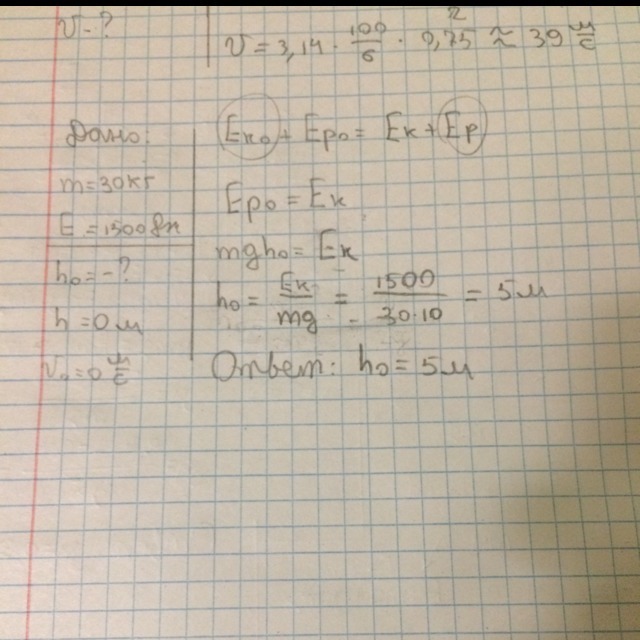 v - ?
2
v = 3,14 · 100/6 · 0,75 ≈ 39 м/с
Дано:
m = 30кг
E = 1500 Дж
h₀ = - ?
h = 0 м
v₀ = 0 м/с
Eк₀ + Eр₀ = Eк + Eр
Eр₀ = Eк
mgh₀ = Eк
h₀ = Eк/mg = 1500/30·10 = 5 м
Ответ: h₀ = 5 м